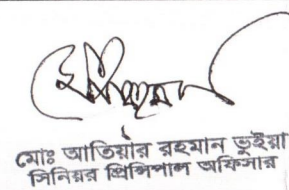 মোঃ আতিয়ার রহমান ভুইয়া
সিনিয়র প্রিন্সিপাল অফিসার